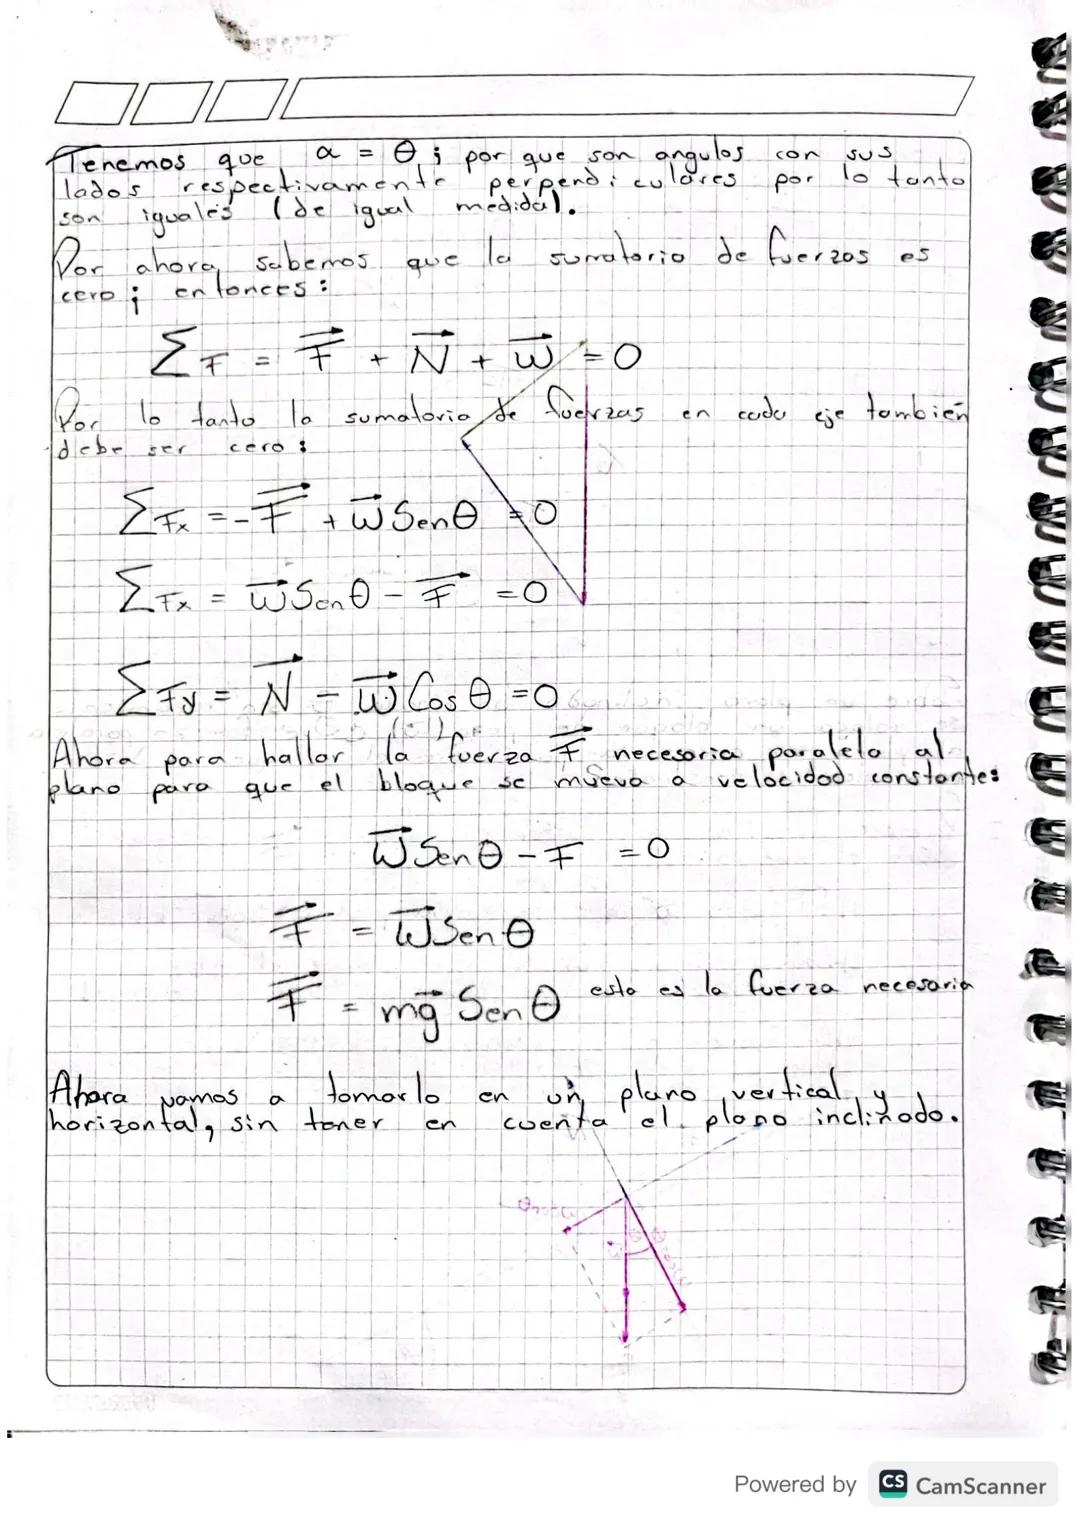 Tenemos que α = θ ; por que son angulos con sus
lados respectivamente perpendiculares por lo tanto
son iguales (de igual medida).
Por ahora, sabemos que la sumatoria de fuerzas es
cero ; entonces :
∑F = F⃗ + N⃗ + w⃗ = 0
Por lo tanto la sumatoria de fuerzas en cada eje también
debe ser cero :
∑Fx = -F⃗ + w⃗ Senθ = 0
∑Fx = w⃗ Senθ - F⃗ = 0
∑Fy = N⃗ - w⃗ Cos θ = 0
Ahora para hallar la fuerza F⃗ necesaria paralela al
plano para que el bloque se mueva a velocidad constante:
w⃗ Senθ - F = 0
F⃗ = w⃗ Senθ
F⃗ = mg⃗ Senθ esta es la fuerza necesaria
Ahora vamos a tomarlo en un plano vertical y
horizontal, sin tener en cuenta el plano inclinado.
Powered by CS CamScanner